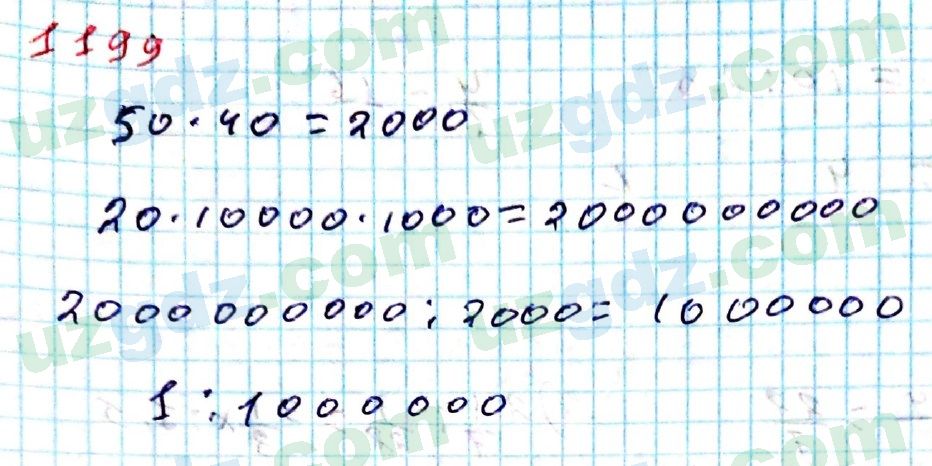 1199
50·40=2000
20·10000·1000=2000000000
2000000000:2000=1000000
1:1000000
uzgdz.com
uzgdz.com
uzgdz.com
uzgdz.com